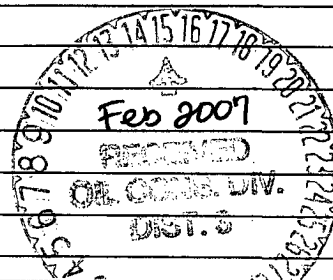 6 7 8 9 10 11 12 13 14 15 16 17 18 19 20 21 22 23 24 25 26
Feb 2007
RECEIVED
OIL CONS. DIV.
DIST. 3